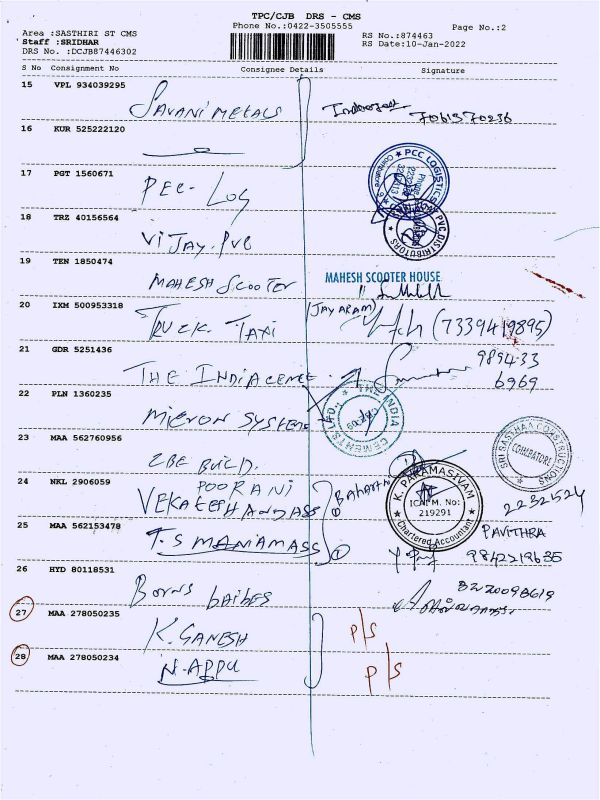 TPC/CJB DRS - CMS
Phone No.:0422-3505555
Page No.:2
Area :SASTHIRI ST CMS
Staff :SRIDHAR
DRS No. :DCJB87446302
RS No.:874463
RS Date:10-Jan-2022
S No Consignment No Consignee Details Signature
15 VPL 934039295
SAVANI METALS
7061570236
16 KUR 525222120
17 PGT 1560671
PEC-LOG
PCC LOGISTICS
18 TRZ 40156564
VIJAY.PVC
PVC DISTRIBUTORS
19 TEN 1850474
MAHESH SCOOTER
MAHESH SCOOTER HOUSE
20 IXM 500953318
TRUCK TAXI
(JAYARAM)
(7339419895)
21 GDR 5251436
THE INDIA CEME
989433
6969
22 PLN 1360235
MICRON SYSTEMS
INDIA CEMENTS LTD.
23 MAA 562760956
CBE BUILD.
SRI SASTHAA CONSTRUCTIONS
COIMBATORE
24 NKL 2906059
POORANI
K. PARAMASIVAM
ICAI M. No:
219291
Chartered Accountant
2232524
25 MAA 562153478
T.S MANIAMASS
PAVITHRA
9842219635
26 HYD 80118531
8220098619
27 MAA 278050235
K.GANESH
P/S
28 MAA 278050234
N.APPU
P/S